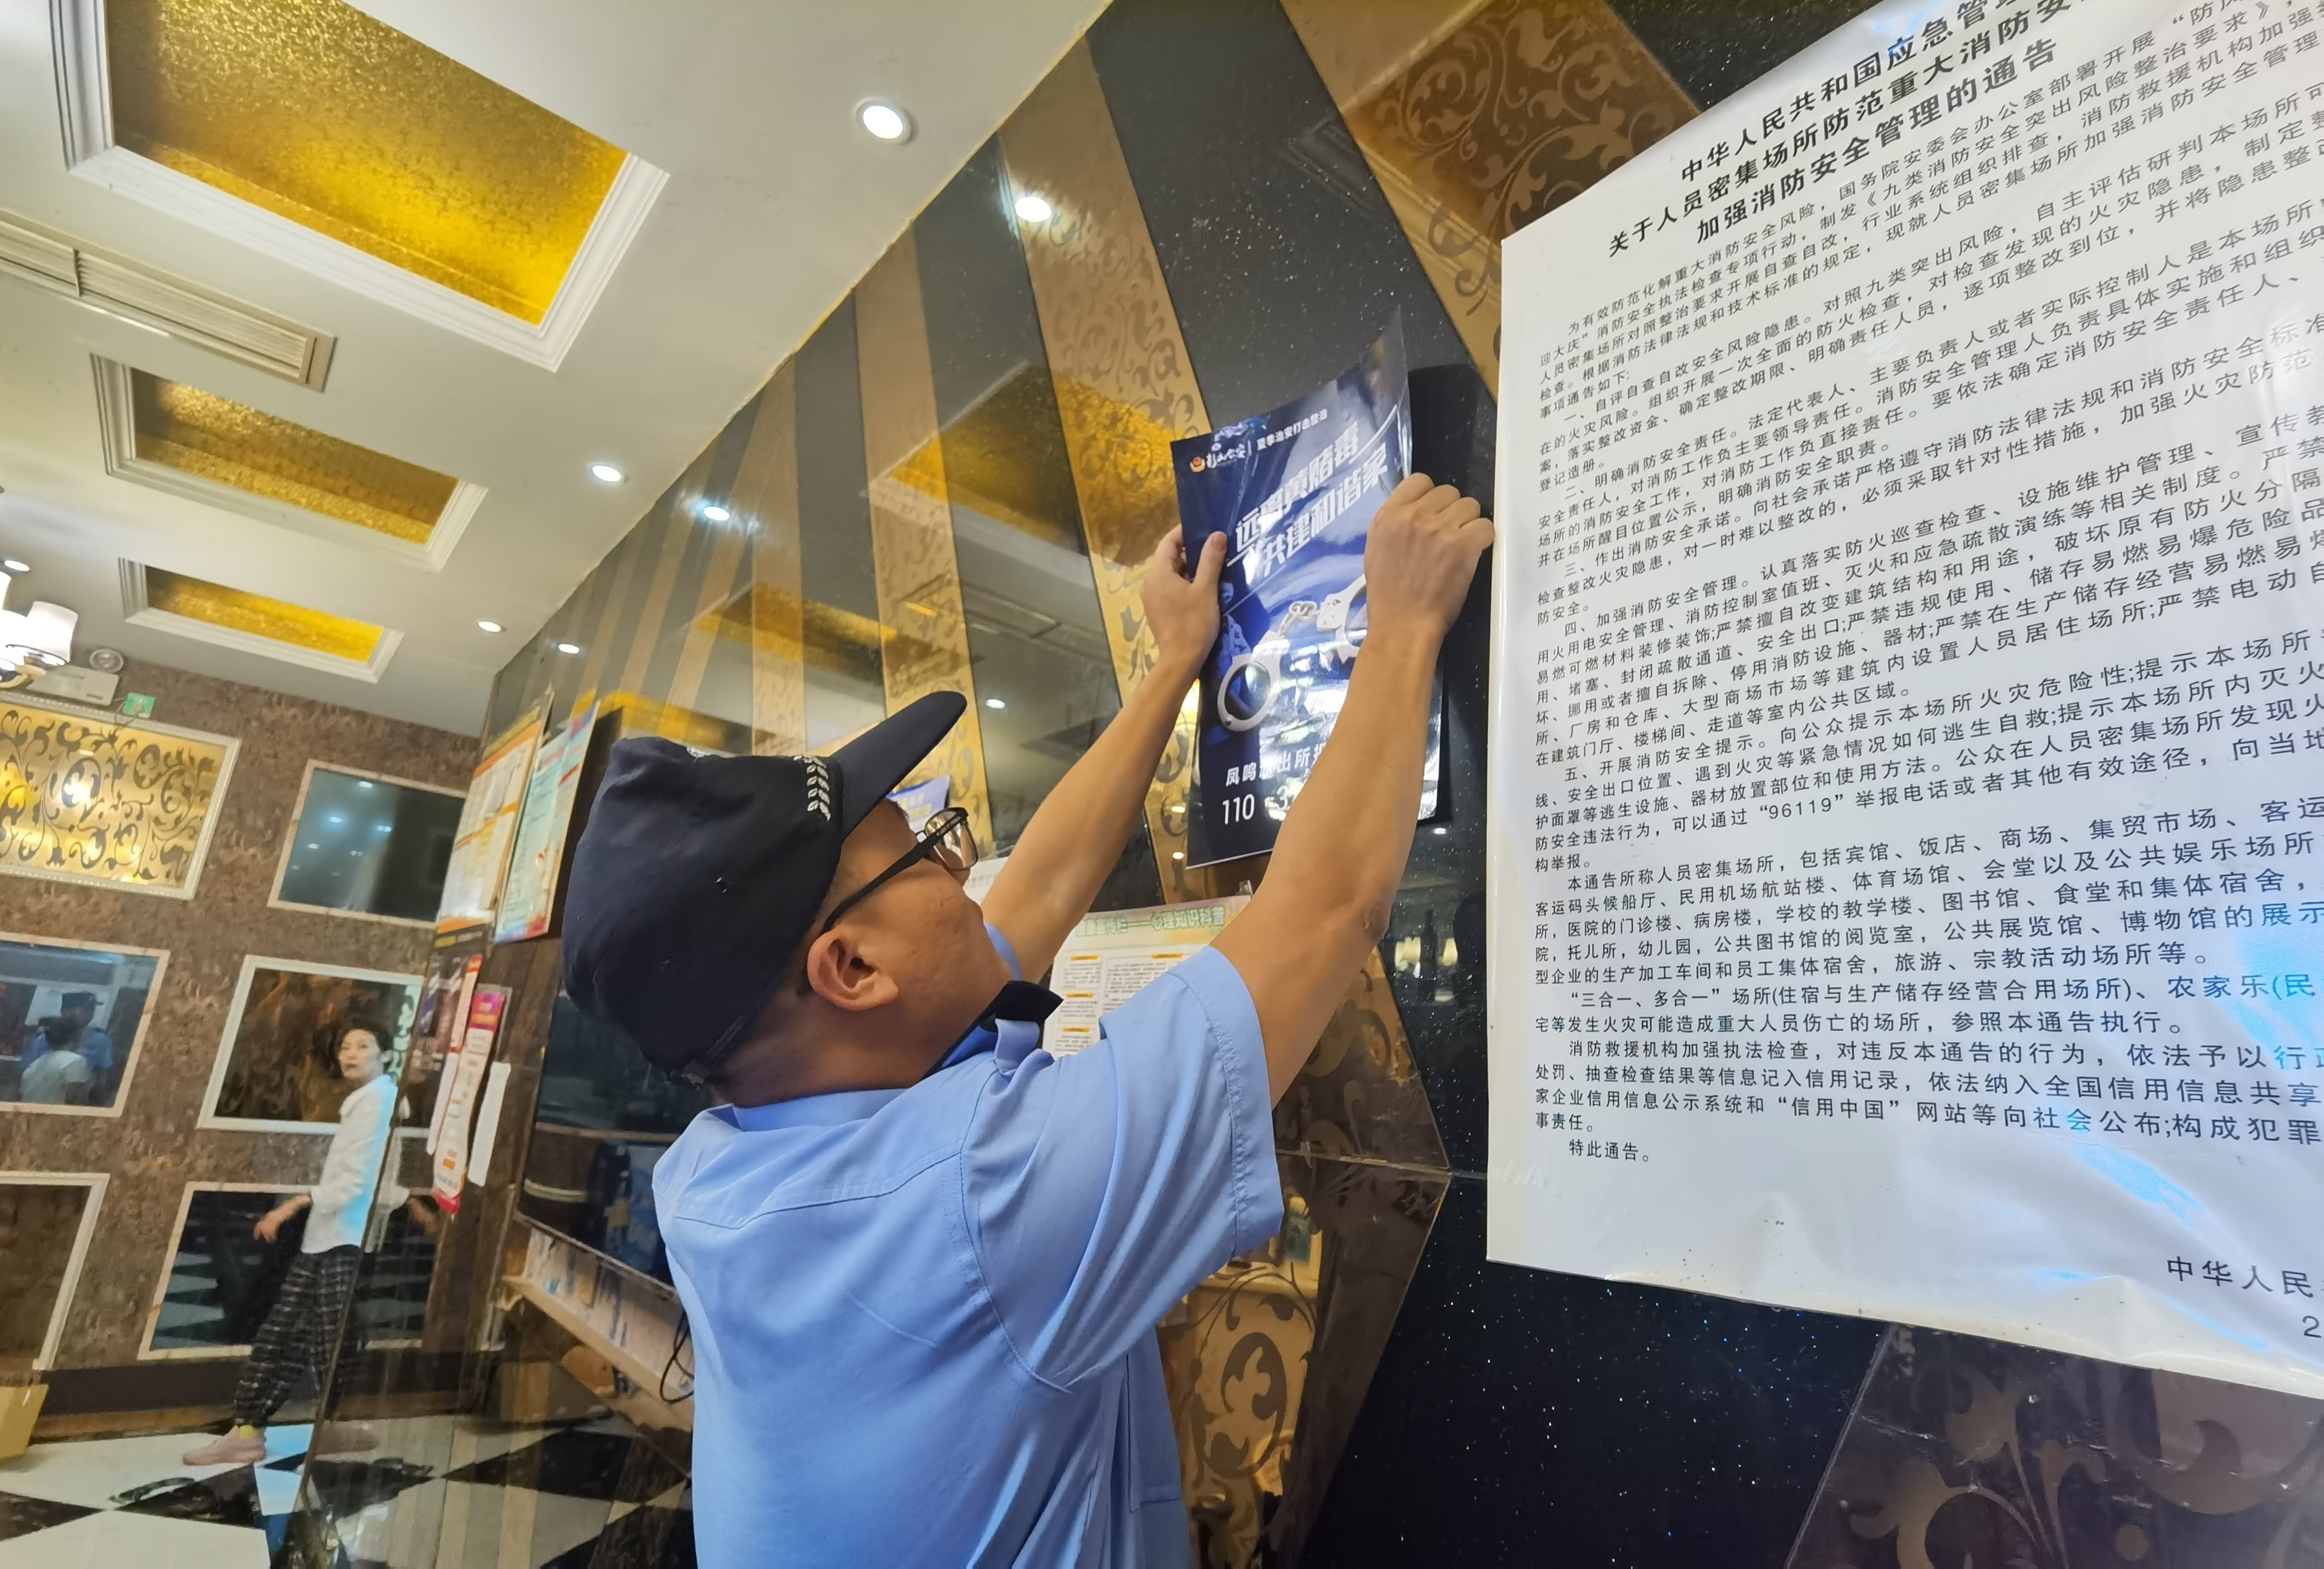 彭山公安 | 夏季治安打击整治
远离黄赌毒
共建和谐家
凤鸣
出所
110
心理知识科普
中华人民共和国应急管理
关于人员密集场所防范重大消防安
加强消防安全管理的通告
为有效防范化解重大消防安全风险，国务院安委会办公室部署开展“防风
迎大庆”消防安全执法检查专项行动，制发《九类消防安全突出风险整治要求》，
人员密集场所对照整治要求开展自查自改，行业系统组织排查，消防救援机构加强
检查。根据消防法律法规和技术标准的规定，现就人员密集场所加强消防安全管理
事项通告如下:
一、自评自查自改安全风险隐患。对照九类突出风险，自主评估研判本场所可
在的火灾风险。组织开展一次全面的防火检查，对检查发现的火灾隐患，制定整
案，落实整改资金、确定整改期限、明确责任人员，逐项整改到位，并将隐患整改
登记造册。
二、明确消防安全责任。法定代表人、主要负责人或者实际控制人是本场所
安全责任人，对消防工作负主要领导责任。消防安全管理人员负责具体实施和组织
场所的消防安全工作，对消防工作负直接责任。要依法确定消防安全责任人、
并在场所醒目位置公示，明确消防安全职责。
三、作出消防安全承诺。向社会承诺严格遵守消防法律法规和消防安全标准
检查整改火灾隐患，对一时难以整改的，必须采取针对性措施，加强火灾防范
防安全。
四、加强消防安全管理。认真落实防火巡查检查、设施维护管理、宣传教
用火用电安全管理、消防控制室值班、灭火和应急疏散演练等相关制度。严禁
易燃可燃材料装修装饰;严禁擅自改变建筑结构和用途，破坏原有防火分隔
用、堵塞、封闭疏散通道、安全出口;严禁违规使用、储存易燃易爆危险品
坏、挪用或者擅自拆除、停用消防设施、器材;严禁在生产储存经营易燃易爆
所、厂房和仓库、大型商场市场等建筑内设置人员居住场所;严禁电动自
在建筑门厅、楼梯间、走道等室内公共区域。
五、开展消防安全提示。向公众提示本场所火灾危险性;提示本场所
线、安全出口位置、遇到火灾等紧急情况如何逃生自救;提示本场所内灭火
护面罩等逃生设施、器材放置部位和使用方法。公众在人员密集场所发现火
防安全违法行为，可以通过“96119”举报电话或者其他有效途径，向当地
构举报。
本通告所称人员密集场所，包括宾馆、饭店、商场、集贸市场、客运
客运码头候船厅、民用机场航站楼、体育场馆、会堂以及公共娱乐场所
所，医院的门诊楼、病房楼，学校的教学楼、图书馆、食堂和集体宿舍，
院，托儿所，幼儿园，公共图书馆的阅览室，公共展览馆、博物馆的展示
型企业的生产加工车间和员工集体宿舍，旅游、宗教活动场所等。
“三合一、多合一”场所(住宿与生产储存经营合用场所)、农家乐(民
宅等发生火灾可能造成重大人员伤亡的场所，参照本通告执行。
消防救援机构加强执法检查，对违反本通告的行为，依法予以行政
处罚、抽查检查结果等信息记入信用记录，依法纳入全国信用信息共享
家企业信用信息公示系统和“信用中国”网站等向社会公布;构成犯罪
事责任。
特此通告。
中华人民
2